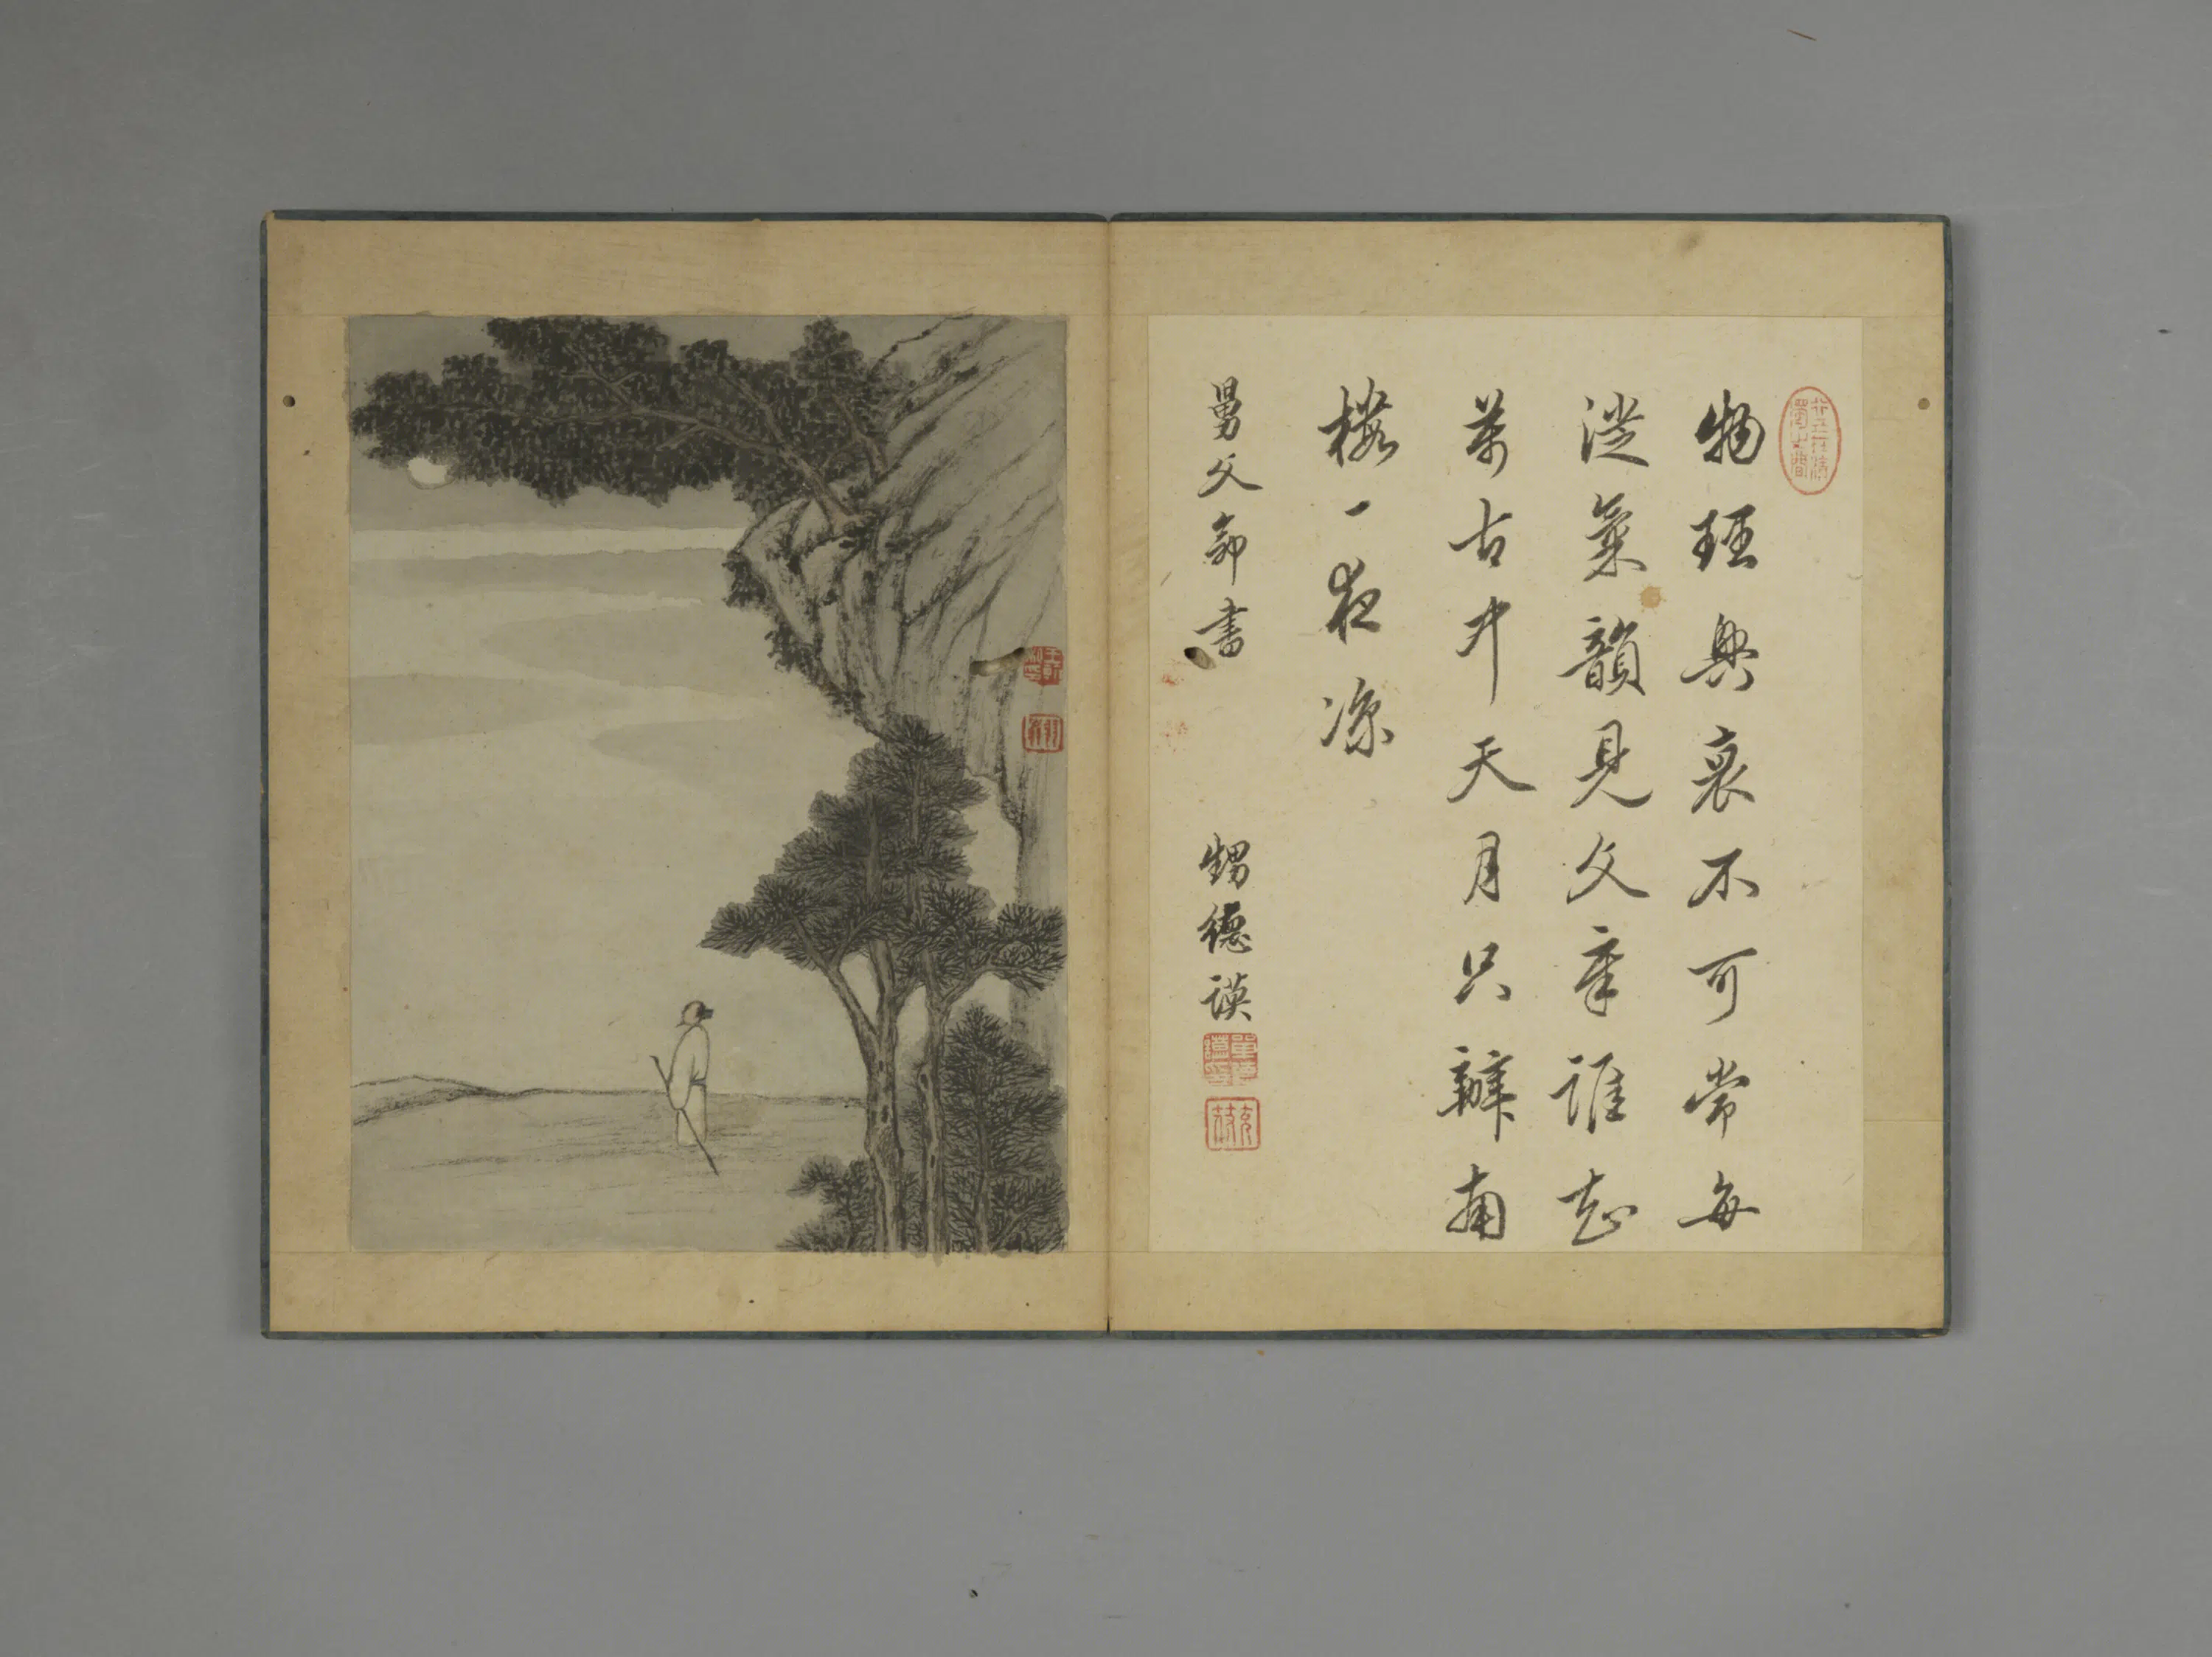 物理興衰不可常每
從氣韻見文章誰知
萬古中天月只辦南
樓一夜涼
舅父命書 甥德謨